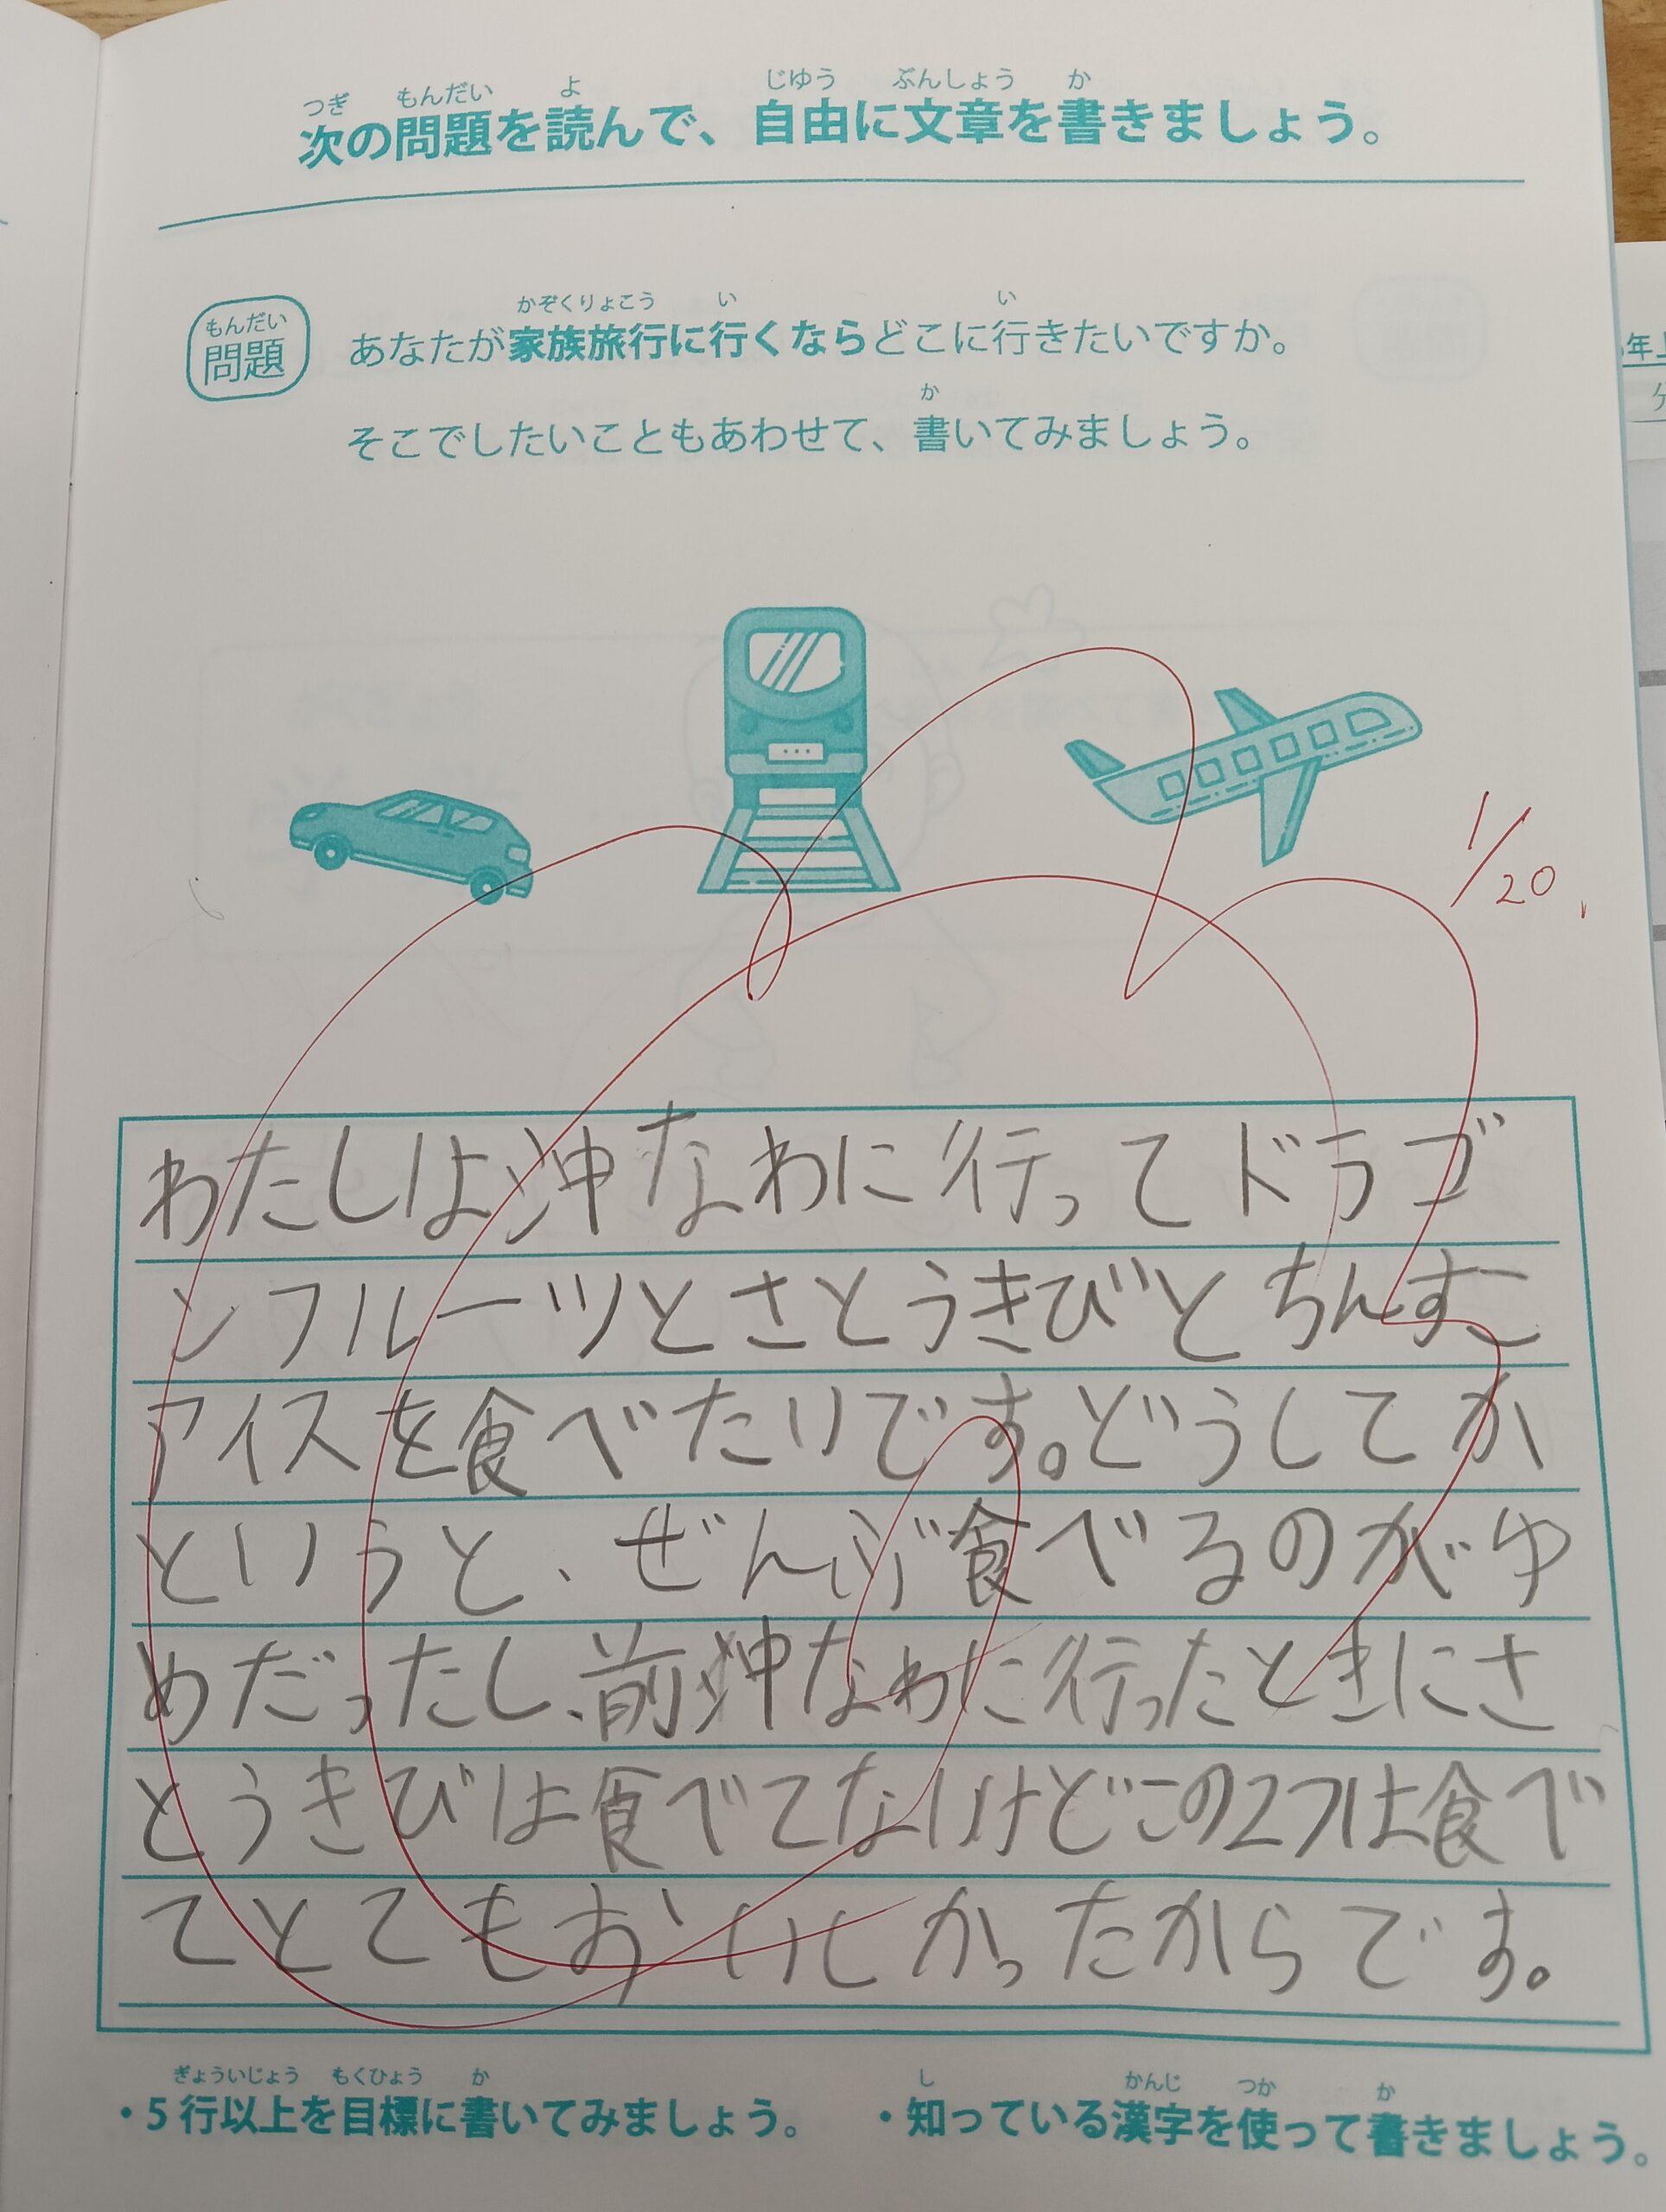 つぎ もんだい よ じゆう ぶんしょう か
次の問題を読んで、自由に文章を書きましょう。
もんだい
問題
かぞくりょこう い い
あなたが家族旅行に行くならどこに行きたいですか。
か
そこでしたいこともあわせて、書いてみましょう。
1/20
わたしは沖なわに行ってドラゴ
ンフルーツとさとうきびとちんすこ
アイスを食べたいです。どうしてか
というと、ぜんぶ食べるのがゆ
めだったし、前沖なわに行ったときにさ
とうきびは食べてないけどこの2つは食べ
てとてもおいしかったからです。
ぎょういじょう もくひょう か
・5行以上を目標に書いてみましょう。
し かんじ つか か
・知っている漢字を使って書きましょう。
年上